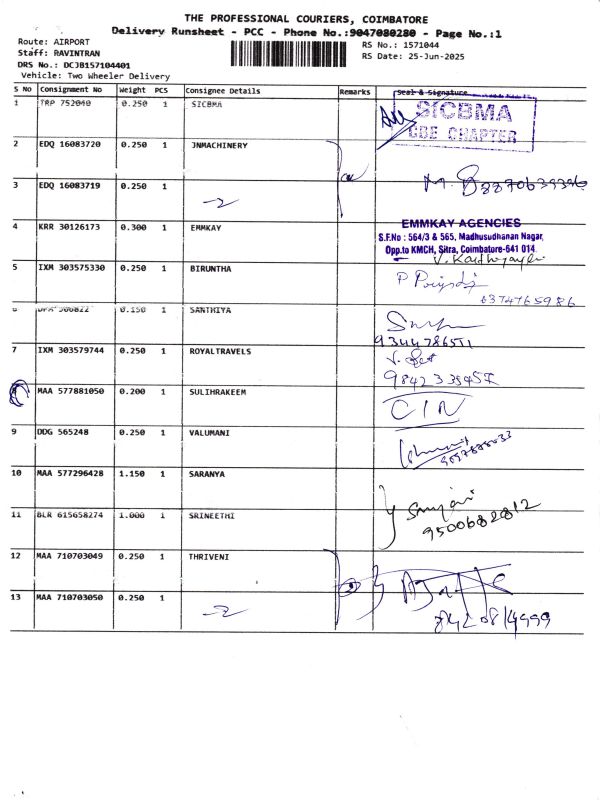 THE PROFESSIONAL COURIERS, COIMBATORE
Delivery Runsheet - PCC - Phone No.:9047080280 - Page No.:1
Route: AIRPORT
RS No.: 1571044
Staff: RAVINTRAN
RS Date: 25-Jun-2025
DRS No.: DCJB157104401
Vehicle: Two Wheeler Delivery
S No Consignment No Weight PCS Consignee Details Remarks Seal & Signature
1 TRP 752040 0.250 1 SICBMA
SICBMA
CDE CHAPTER
2 EDQ 16083720 0.250 1 JNMACHINERY
3 EDQ 16083719 0.250 1
4 KRR 30126173 0.300 1 EMMKAY
EMMKAY AGENCIES
S.F.No : 564/3 & 565, Madhusudhanan Nagar,
Opp.to KMCH, Sitra, Coimbatore-641 014.
5 IXM 303575330 0.250 1 BIRUNTHA
6374765986
0.150 1 SANTHIYA
9344786571
7 IXM 303579744 0.250 1 ROYALTRAVELS
MAA 577881050 0.200 1 SULIHRAKEEM
9 DDG 565248 0.250 1 VALUMANI
10 MAA 577296428 1.150 1 SARANYA
11 BLR 615658274 1.000 1 SRINEETHI
9500682812
12 MAA 710703049 0.250 1 THRIVENI
13 MAA 710703050 0.250 1